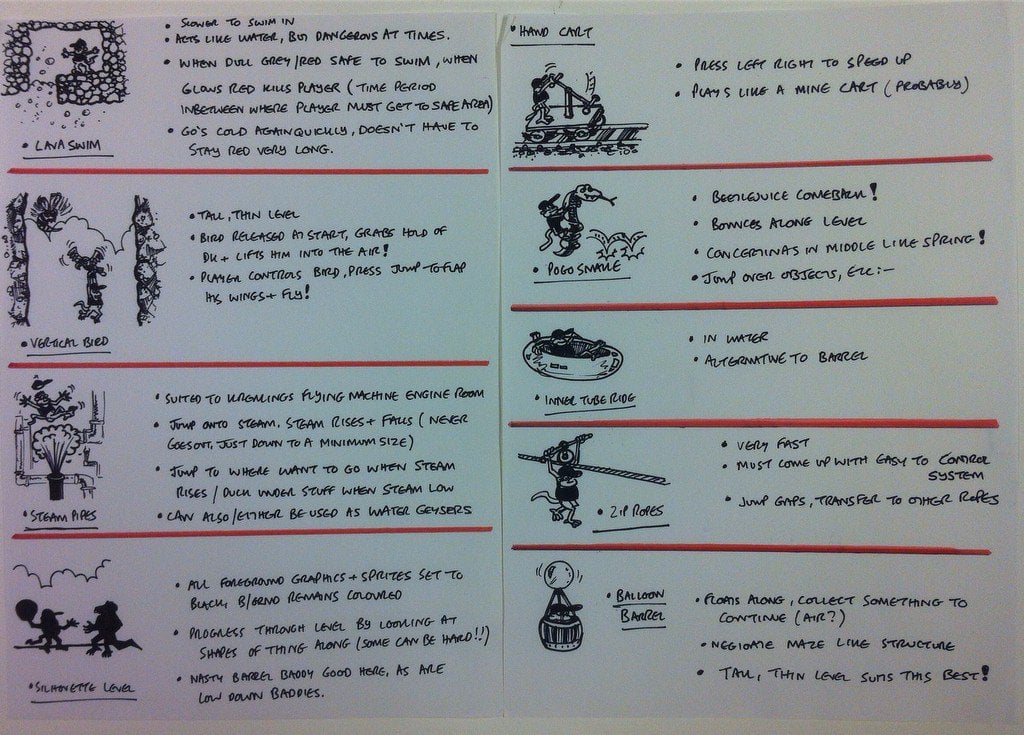 • SLOWER TO SWIM IN
• ACTS LIKE WATER, BUT DANGEROUS AT TIMES.
• WHEN DULL GREY/RED SAFE TO SWIM, WHEN
GLOWS RED KILLS PLAYER (TIME PERIOD
INBETWEEN WHERE PLAYER MUST GET TO SAFE AREA)
• GO'S COLD AGAIN QUICKLY, DOESN'T HAVE TO
STAY RED VERY LONG.
• LAVA SWIM
• TALL, THIN LEVEL
• BIRD RELEASED AT START, GRABS HOLD OF
DK + LIFTS HIM INTO THE AIR!
• PLAYER CONTROLS BIRD, PRESS JUMP TO FLAP
HIS WINGS + FLY!
• VERTICAL BIRD
• SUITED TO KREMLINGS FLYING MACHINE ENGINE ROOM
• JUMP ONTO STEAM. STEAM RISES + FALLS (NEVER
GOES OUT, JUST DOWN TO A MINIMUM SIZE)
• JUMP TO WHERE WANT TO GO WHEN STEAM
RISES / DUCK UNDER STUFF WHEN STEAM LOW
• CAN ALSO/EITHER BE USED AS WATER GEYSERS
• STEAM PIPES
• ALL FOREGROUND GRAPHICS + SPRITES SET TO
BLACK, B/GRND REMAINS COLOURED
• PROGRESS THROUGH LEVEL BY LOOKING AT
SHAPES OF THING ALONG (SOME CAN BE HARD!!)
• NASTY BARREL BADDY GOOD HERE, AS ARE
LOW DOWN BADDIES.
• SILHOUETTE LEVEL
• HAND CART
• PRESS LEFT RIGHT TO SPEED UP
• PLAYS LIKE A MINE CART (PROBABLY)
• BEETLEJUICE COMEBACK!
• BOUNCES ALONG LEVEL
• CONCERTINA'S IN MIDDLE LIKE SPRING!
• JUMP OVER OBJECTS, ETC:-
• POGO SNAKE
• IN WATER
• ALTERNATIVE TO BARREL
• INNER TUBE RIDE
• VERY FAST
• MUST COME UP WITH EASY TO CONTROL
SYSTEM
• JUMP GAPS, TRANSFER TO OTHER ROPES
• ZIP ROPES
• BALLOON
BARREL
• FLOATS ALONG, COLLECT SOMETHING TO
CONTINUE (AIR?)
• NEGIOATE MAZE LIKE STRUCTURE
• TALL, THIN LEVEL SUITS THIS BEST!